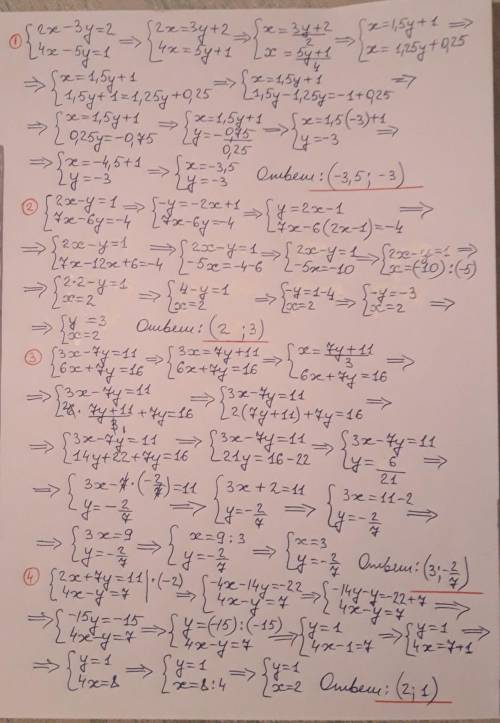 ① {2x-3y=2 4x-5y=1 ⇒ {2x=3y+2 4x=5y+1 ⇒ {x=(3y+2)/2 x=(5y+1)/4 ⇒ {x=1,5y+1 x=1,25y+0,25 ⇒
⇒ {x=1,5y+1 1,5y+1=1,25y+0,25 ⇒ {x=1,5y+1 1,5y-1,25y=-1+0,25 ⇒
⇒ {x=1,5y+1 0,25y=-0,75 ⇒ {x=1,5y+1 y=-0,75/0,25 ⇒ {x=1,5(-3)+1 y=-3 ⇒
⇒ {x=-4,5+1 y=-3 ⇒ {x=-3,5 y=-3 Ответ: (-3,5; -3)
② {2x-y=1 7x-6y=-4 ⇒ {-y=-2x+1 7x-6y=-4 ⇒ {y=2x-1 7x-6(2x-1)=-4 ⇒
⇒ {2x-y=1 7x-12x+6=-4 ⇒ {2x-y=1 -5x=-4-6 ⇒ {2x-y=1 -5x=-10 ⇒ {2x-y=1 x=(-10):(-5) ⇒
⇒ {2·2-y=1 x=2 ⇒ {4-y=1 x=2 ⇒ {-y=1-4 x=2 ⇒ {-y=-3 x=2 ⇒
⇒ {y=3 x=2 Ответ: (2 ;3)
③ {3x-7y=11 6x+7y=16 ⇒ {3x=7y+11 6x+7y=16 ⇒ {x=(7y+11)/3 6x+7y=16 ⇒
⇒ {3x-7y=11 · (7y+11)/3 +7y=16 ⇒ {3x-7y=11 2(7y+11)+7y=16 ⇒
⇒ {3x-7y=11 14y+22+7y=16 ⇒ {3x-7y=11 21y=16-22 ⇒ {3x-7y=11 y=6/21 ⇒
⇒ {3x-7·(-2/7)=11 y=-2/7 ⇒ {3x+2=11 y=-2/7 ⇒ {3x=11-2 y=-2/7 ⇒
⇒ {3x=9 y=-2/7 ⇒ {x=9:3 y=-2/7 ⇒ {x=3 y=-2/7 Ответ: (3;-2/7)
④ {2x+7y=11 |·(-2) 4x-y=7 ⇒ {-4x-14y=-22 4x-y=7 ⇒ {-14y-y=-22+7 4x-y=7 ⇒
⇒ {-15y=-15 4x-y=7 ⇒ {y=(-15):(-15) 4x-y=7 ⇒ {y=1 4x-1=7 ⇒ {y=1 4x=7+1 ⇒
⇒ {y=1 4x=8 ⇒ {y=1 x=8:4 ⇒ {y=1 x=2 Ответ: (2;1)